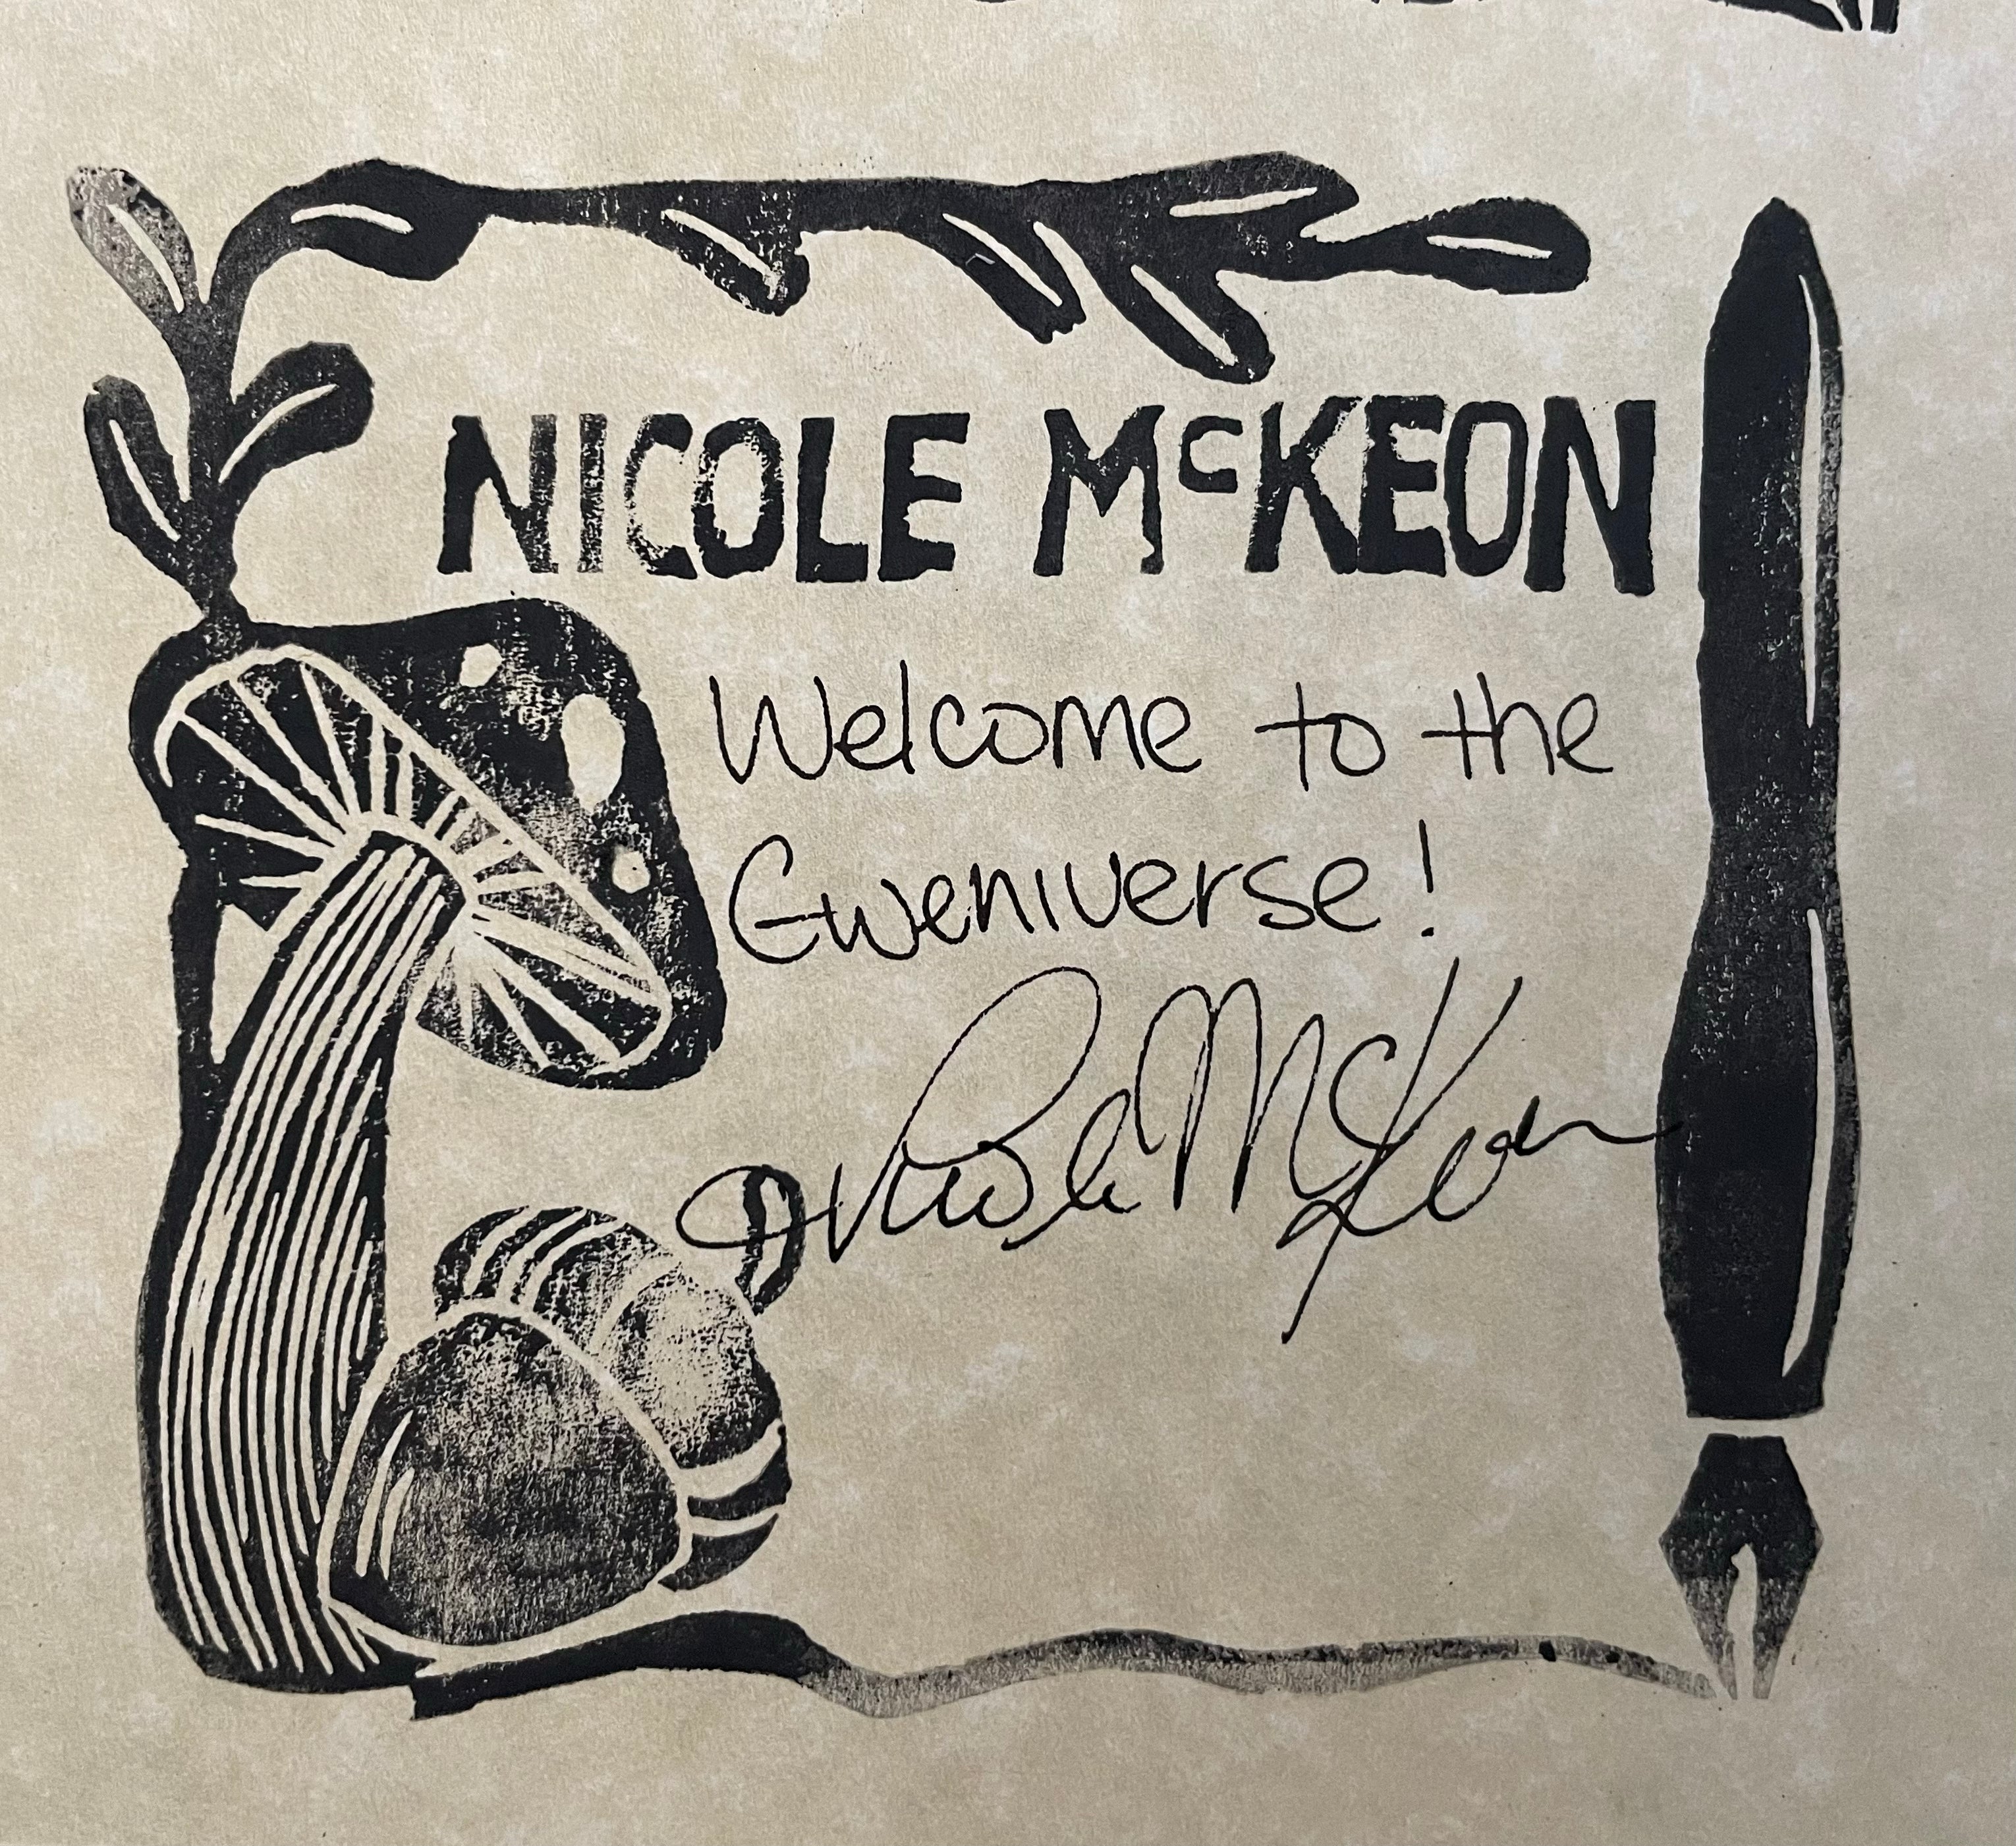 NICOLE McKEON
Welcome to the
Gweniverse!
Nicole McKeon